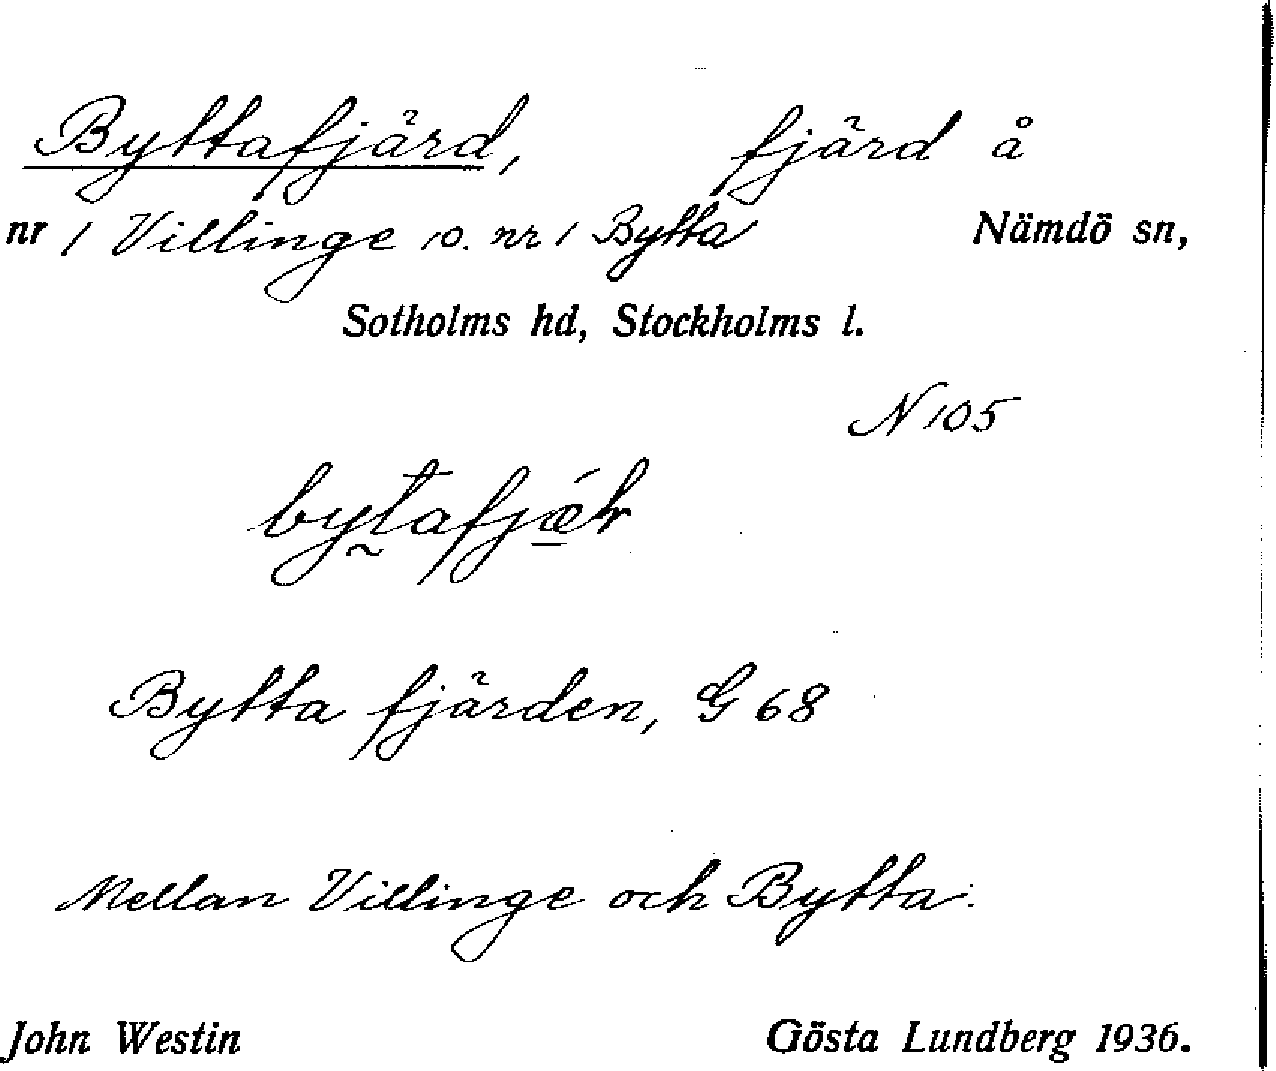 Byttafjärd, fjärd å
nr 1 Villinge o. nr 1 Bytta Nämdö sn,
Sotholms hd, Stockholms l.
N 105
Bytta fjärden, G 68
Mellan Villinge och Bytta.
John Westin Gösta Lundberg 1936.